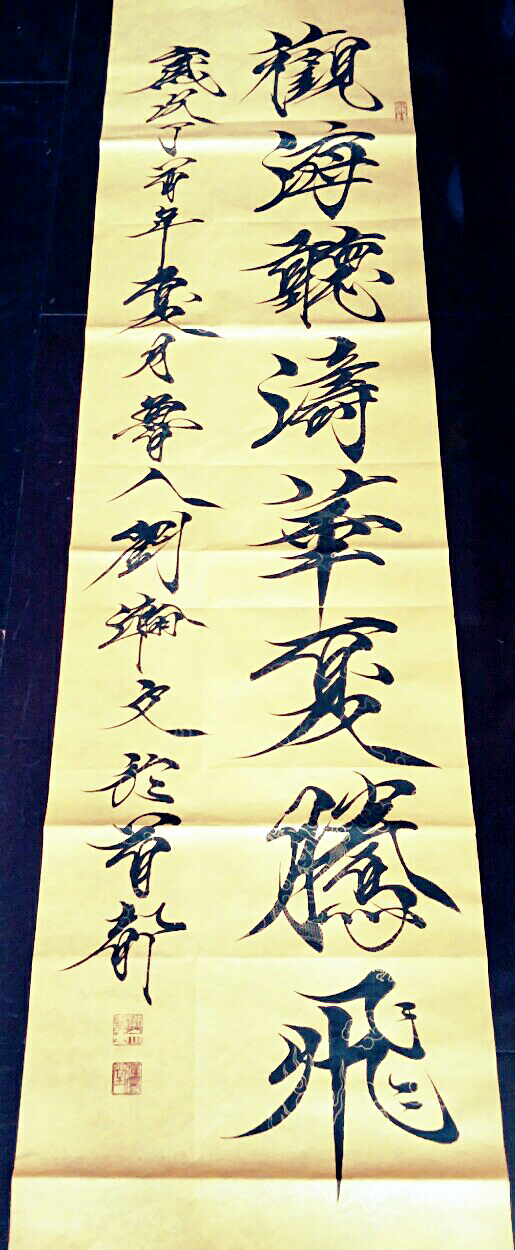 觀海聽濤華夏騰飛
歲次丁酉年夏月人劉瀚文於首都